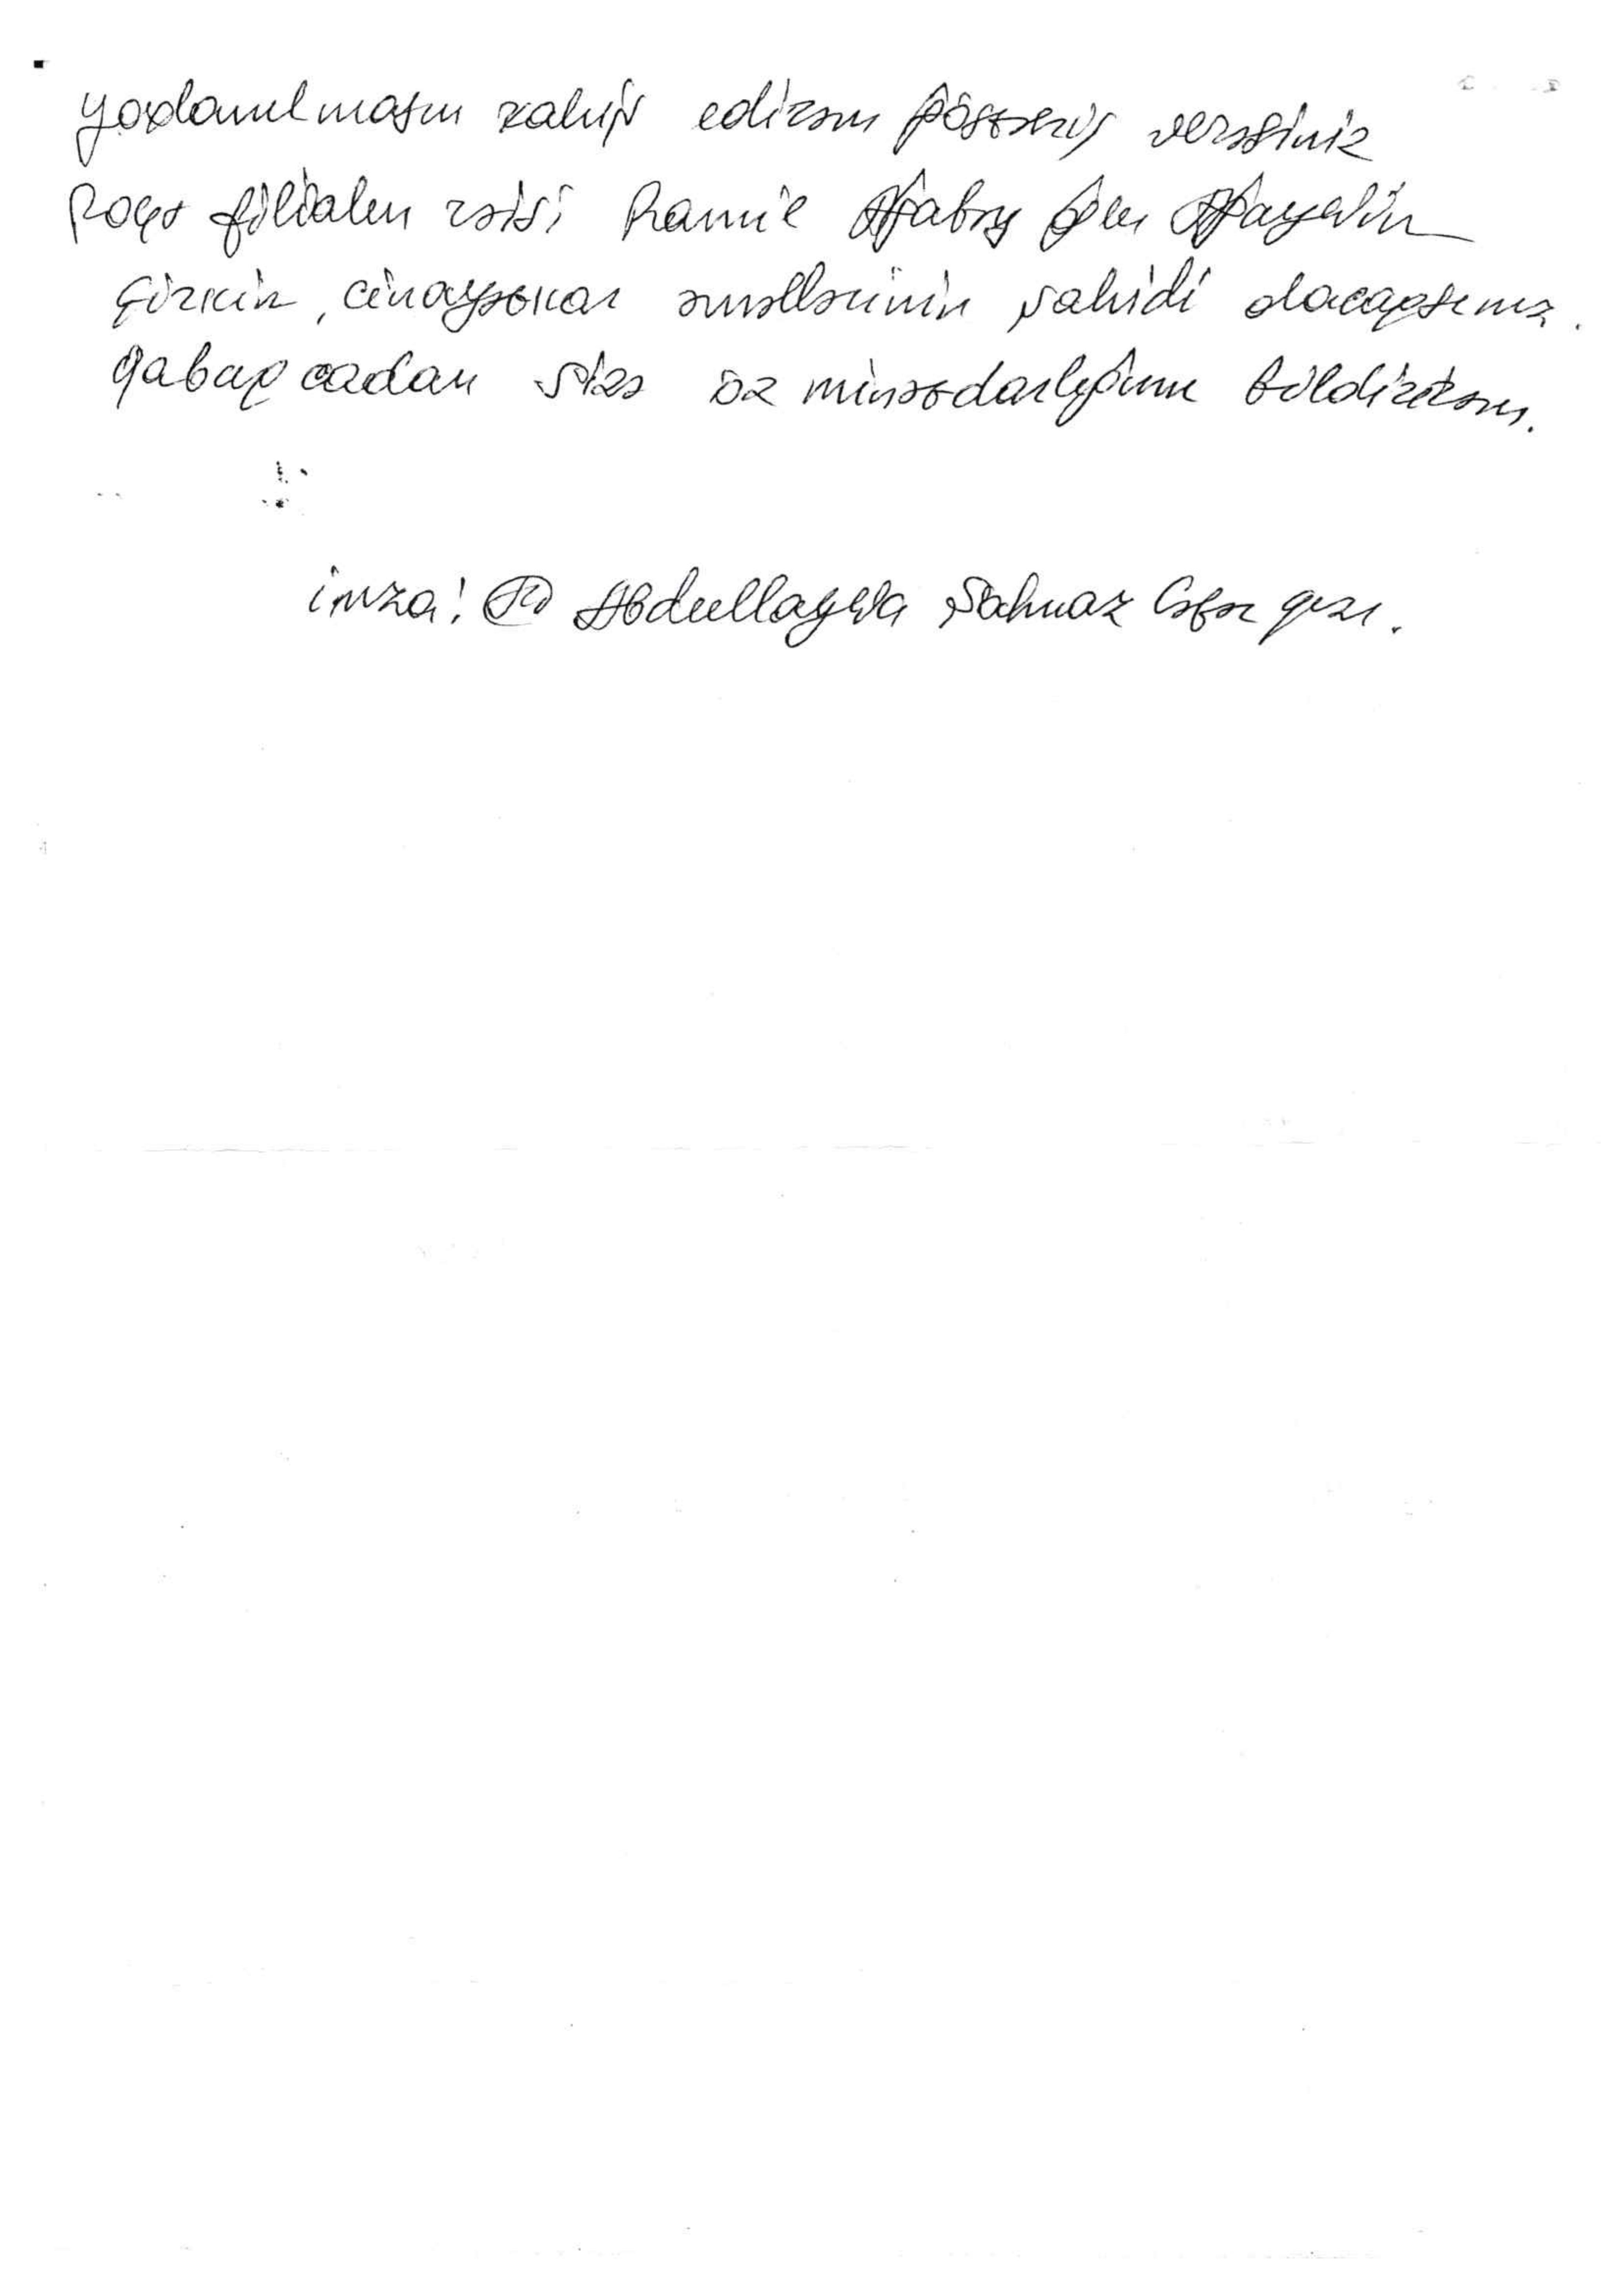 yoxlanılmasın xahiş edirəm göstəriş verəsiniz
Poçt filialın rəisi Ramil oğlu
çirkin, cinayətkar əməllərinin şahidi olacaqsınız.
Qabaqcadan sizə öz minnətdarlığımı bildirirəm.
imza: Abdullayeva Şahnaz Cəfər qızı.